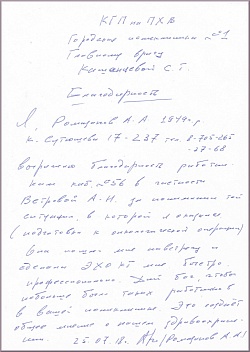 КГП на ПХВ
Городская поликлиника №1
Главному врачу
С. Г.
Благодарность
Я, Романов А. А 1949г.
17-237 тел. 8-705-265
-27-68
выражаю благодарность работни-
кам каб. №256 в частности
Ветровой А. Н. за понимание той
ситуации, в которой я оказался
(подготовка к онкологической операции)
Она пошла мне навстречу и
сделала ЭХО КГ мне быстро
профессионально. Дай бог, чтобы
побольше было таких работников
в Вашей поликлинике. Это создаёт
общее мнение о нашем здравоохране-
нии. 25.07.18г.